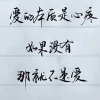 爱的本质是心疼
如果没有
那就不是爱